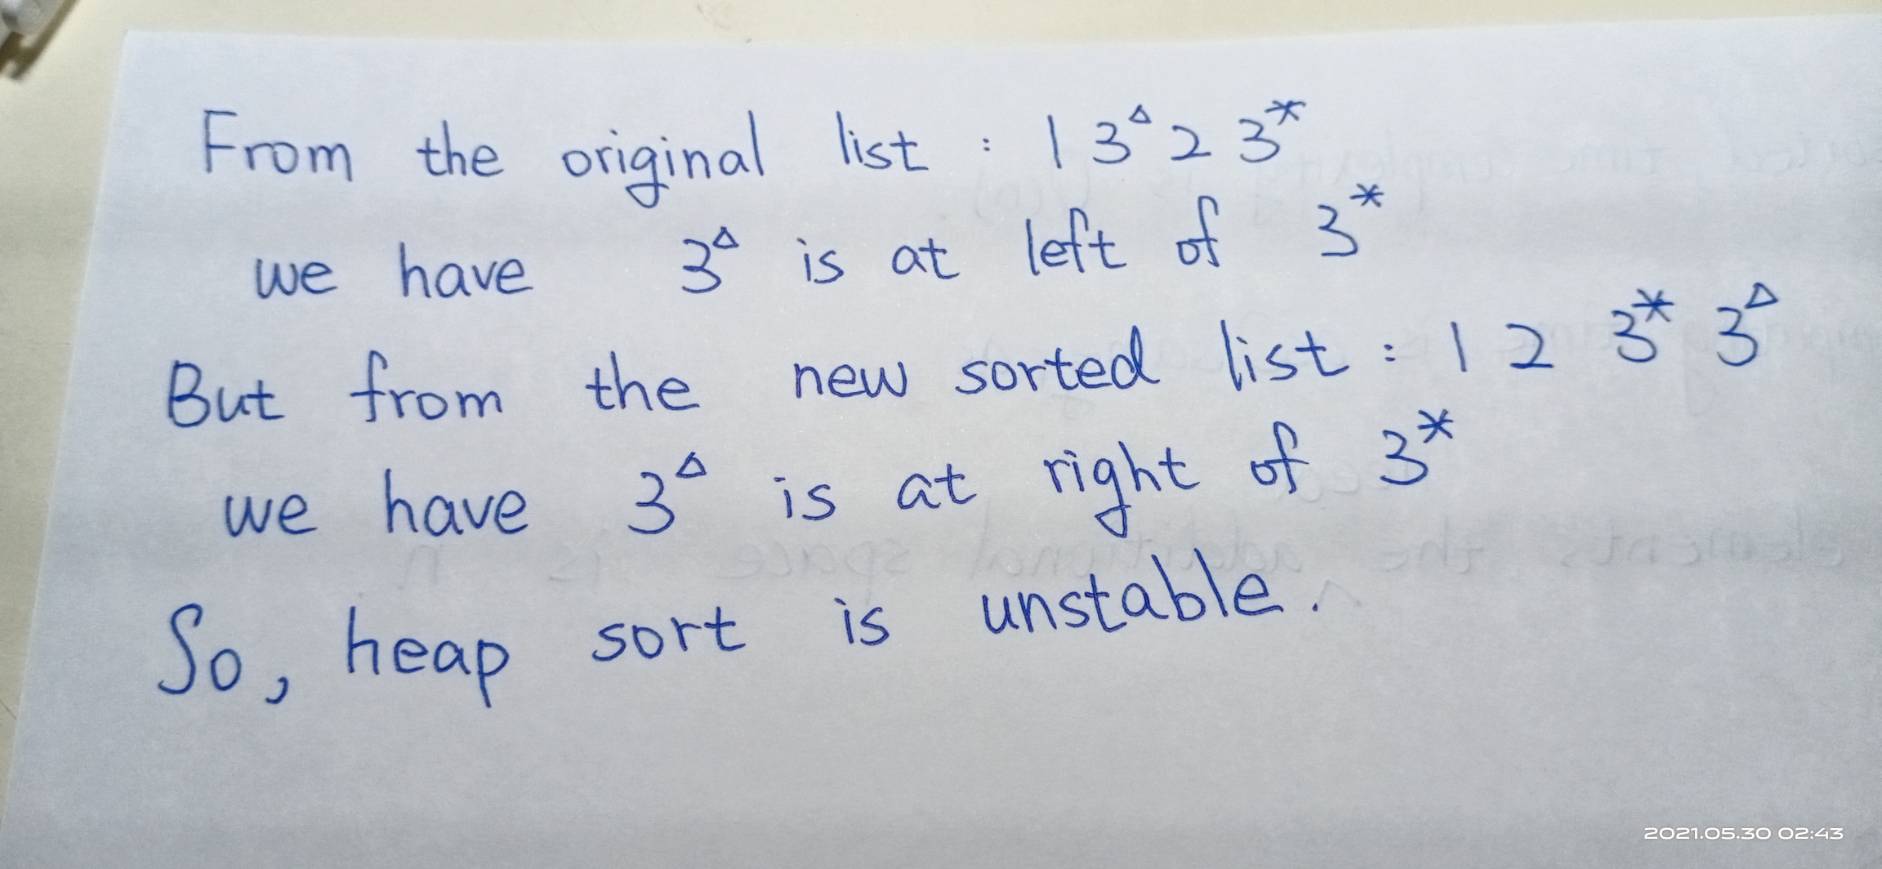 From the original list : 1 3^△ 2 3^*
we have 3^△ is at left of 3^*
But from the new sorted list : 1 2 3^* 3^△
we have 3^△ is at right of 3^*
So, heap sort is unstable.
2021.05.30 02:43